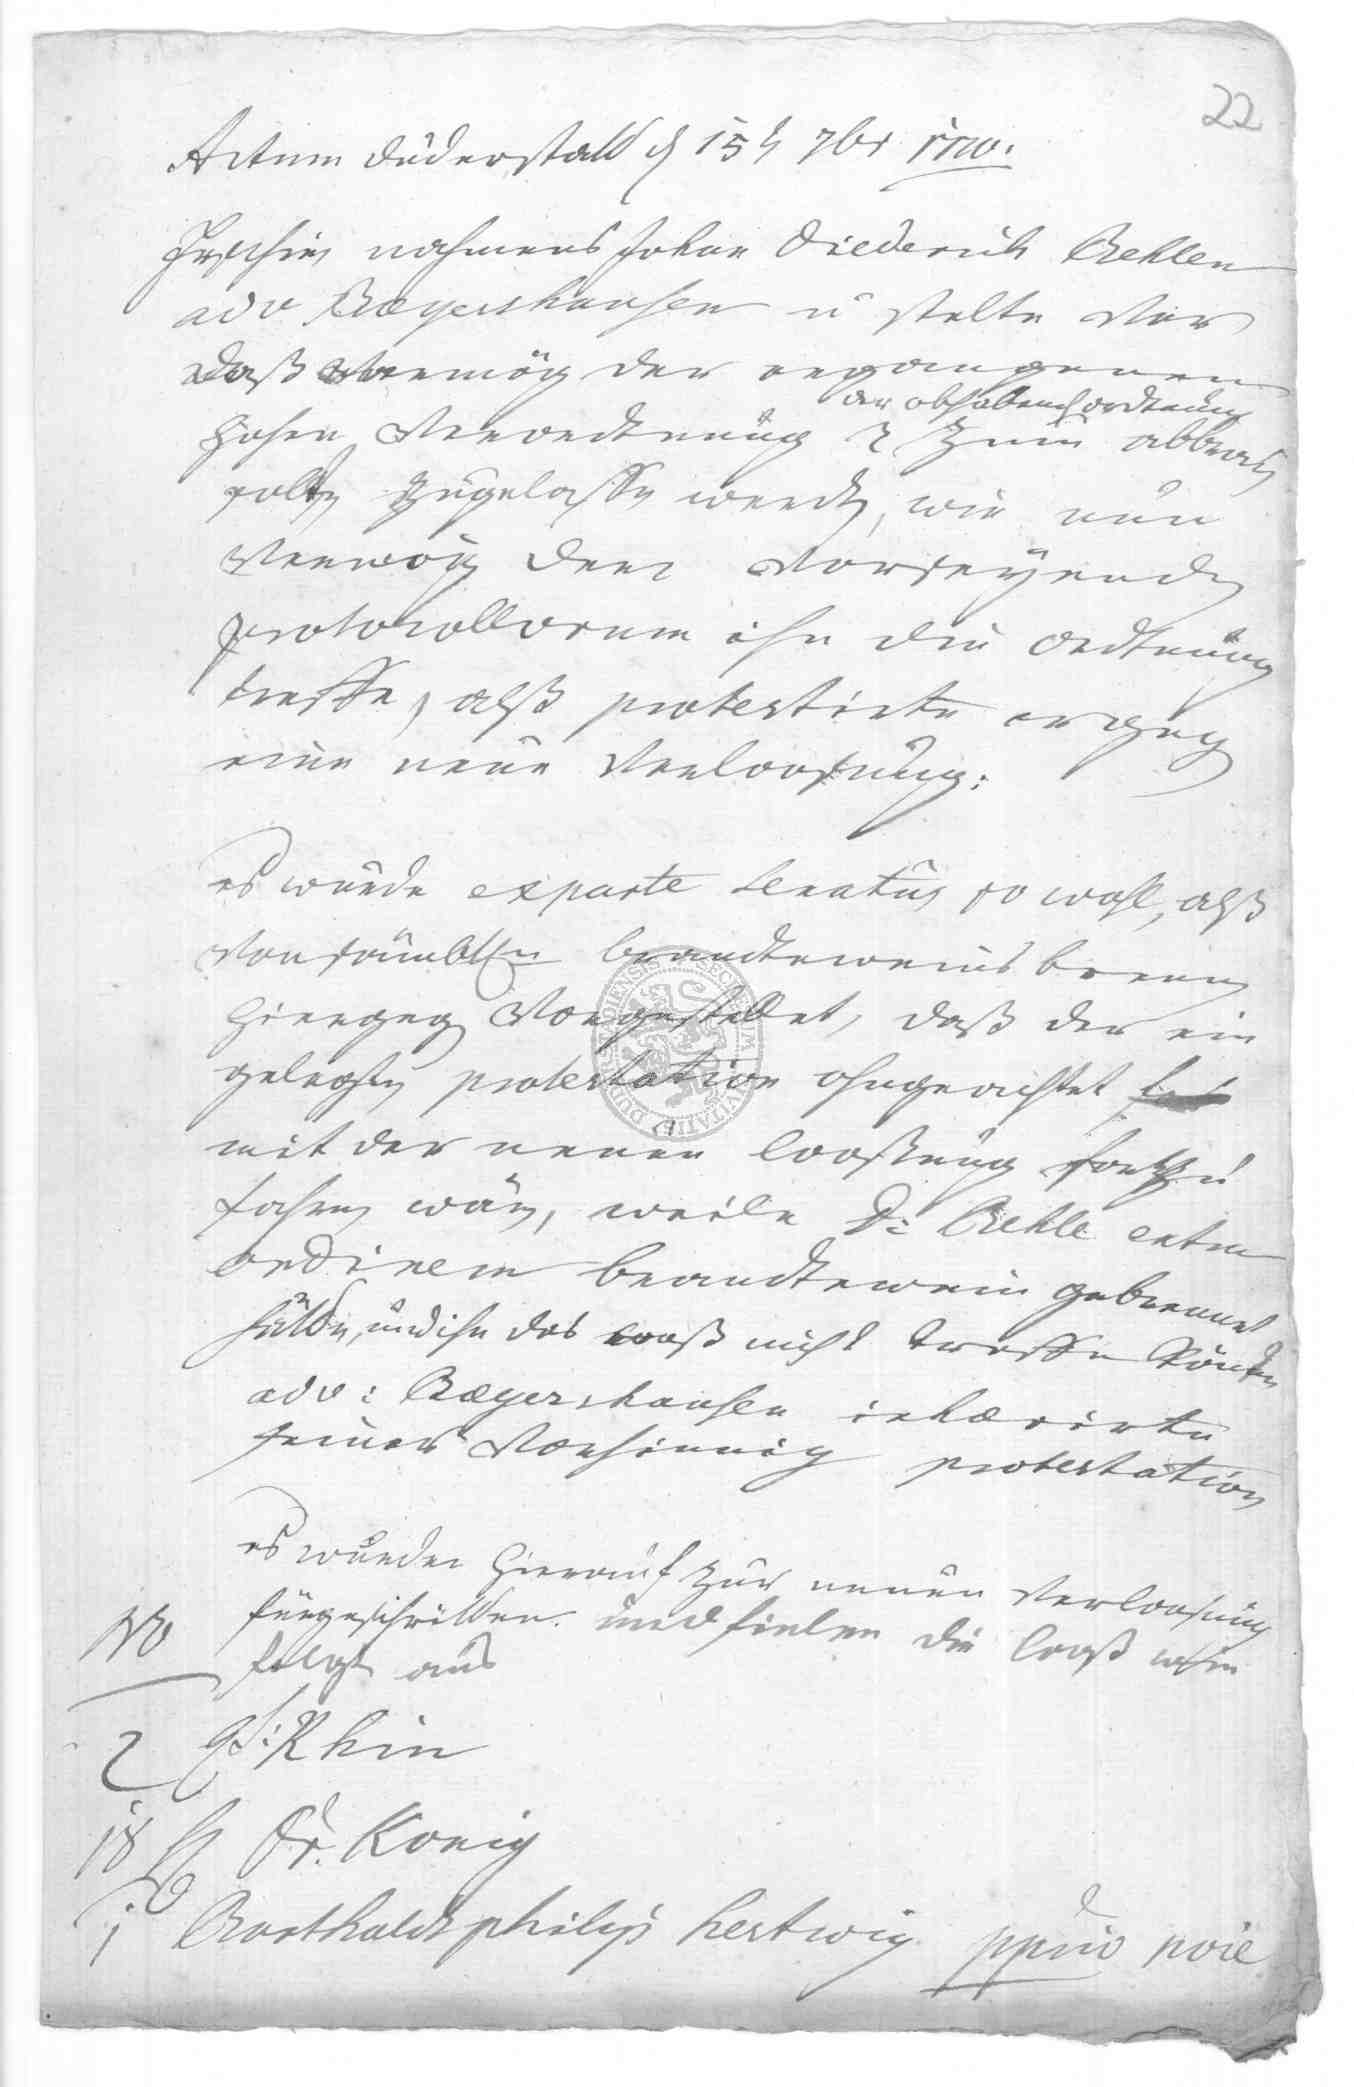 22
Actum Duderstatt d 15t 7br 1710.
Erschin nahmens Johan Diederich Behlen
adv Bægershausen u stelte vor
daß vermög der ergangenen
der obhabend ordtnung
hohen Verordtnung zum abbrand
solte zugelassen werden, wie nun
Vermög deren vorseyenden
protocollorum ihn die ordtnung
treffe, alß protestirte er gegen
eine neue Verloosung:
es wurde ex parte senatus so wohl, alß
von sämbtlichen brandteweins brenner
hiergegen vorgestellet, daß der ein
gelegten protestation ohngeachtet
mit der neuen looßung fortzu
fahren wäre, weile D: Behle extra
ordinem brandtewein gebrennet
hätte, und ihn das looß nicht treffen könte,
adv: Bægershausen inhærirte
seiner Vorhinnigen protestation
es wurde hierauf zur neuen Verloosung
fürgeschritten. und fielen die looß wie
folgt aus
No
2 Rhin
18 Fr. Konig
1 Barthold philip Hertwig pprio noie